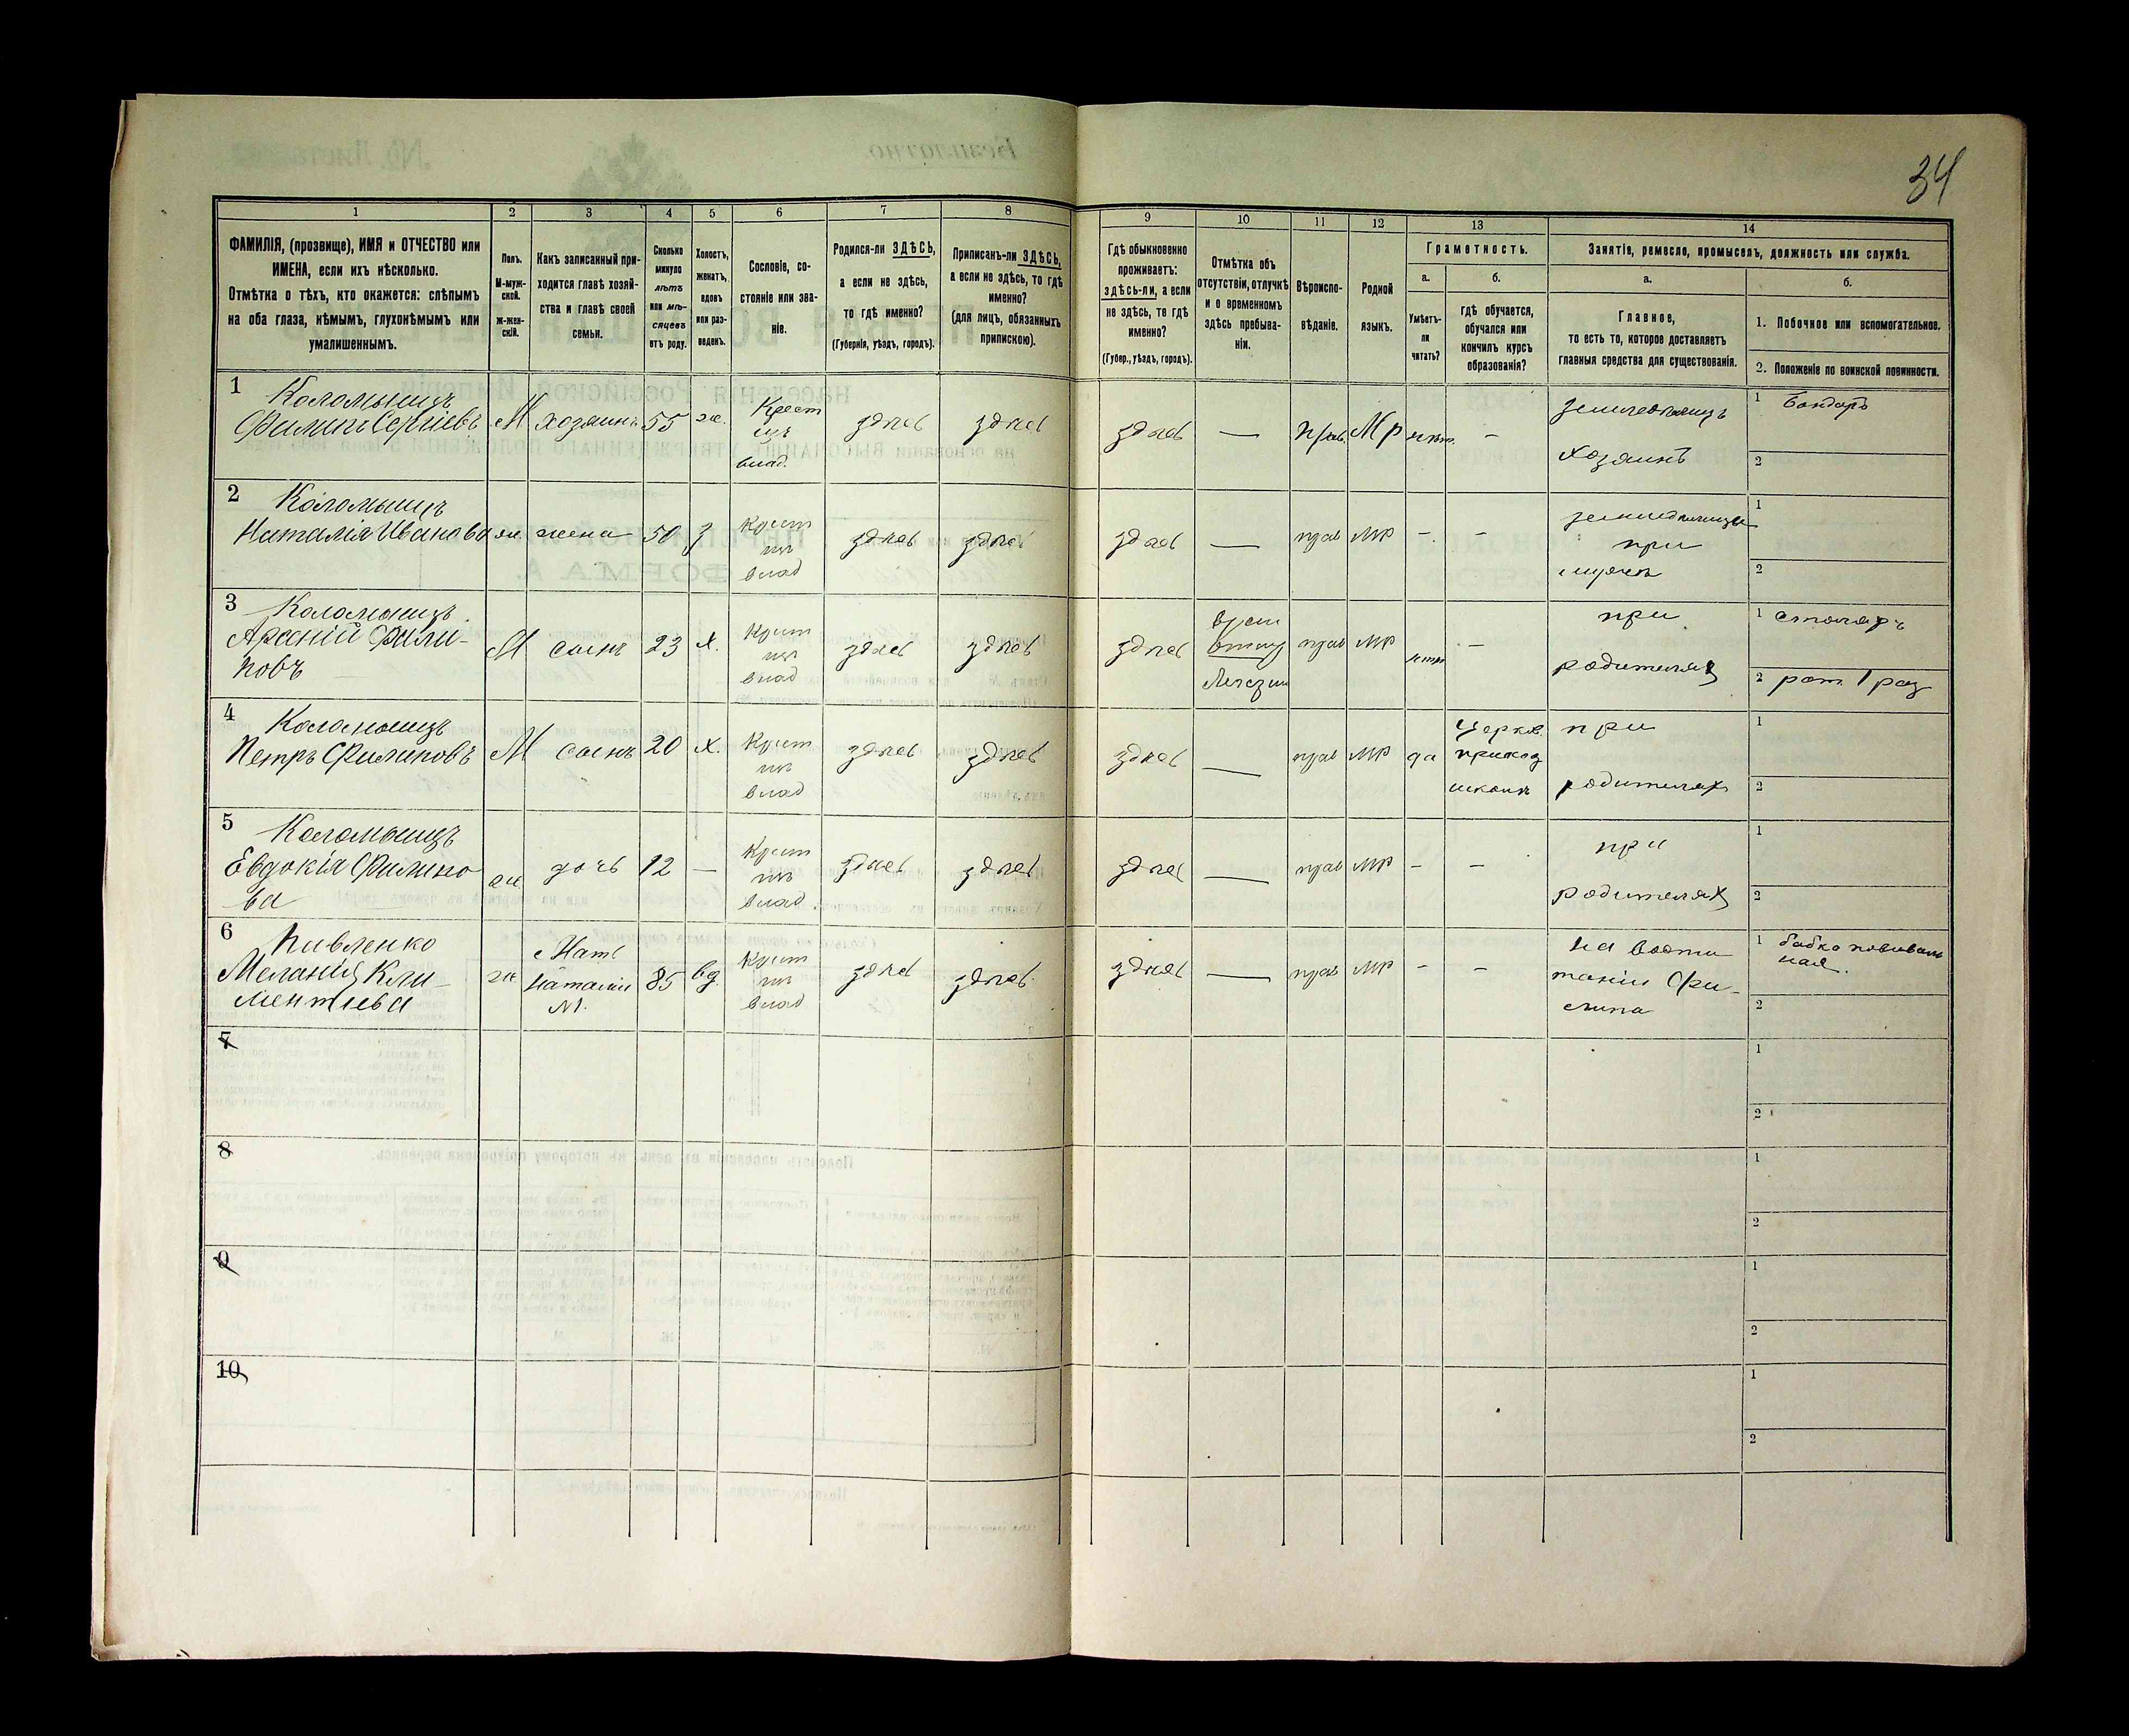 34
1 2 3 4 5 6 7 8 9 10 11 12 13 14
ФАМИЛІЯ, (прозвище), ИМЯ и ОТЧЕСТВО или
ИМЕНА, если ихъ нѣсколько.
Отмѣтка о тѣхъ, кто окажется: слѣпымъ
на оба глаза, нѣмымъ, глухонѣмымъ или
умалишеннымъ.
Полъ.
М-муж-
ской.
ж-жен-
скій.
Какъ записанный при-
ходится главѣ хозяй-
ства и главѣ своей
семьи.
Сколько
минуло
лѣтъ
или мѣ-
сяцевъ
отъ роду.
Холостъ,
женатъ,
вдовъ
или раз-
веденъ.
Сословіе, со-
стояніе или зва-
ніе.
Родился-ли ЗДѢСЬ,
а если не здѣсь,
то гдѣ именно?
(Губернія, уѣздъ, городъ).
Приписанъ-ли ЗДѢСЬ,
а если не здѣсь, то гдѣ
именно?
(для лицъ, обязанныхъ
припискою).
Гдѣ обыкновенно
проживаетъ:
здѣсь-ли, а если
не здѣсь, то гдѣ
именно?
(Губер., уѣздъ, городъ).
Отмѣтка объ
отсутствіи, отлучкѣ
и о временномъ
здѣсь пребыва-
ніи.
Вѣроиспо-
вѣданіе.
Родной
языкъ.
Грамотность.
а.
Умѣетъ-
ли
читать?
б.
гдѣ обучается,
обучался или
кончилъ курсъ
образованія?
Занятіе, ремесло, промыселъ, должность или служба.
а.
Главное,
то есть то, которое доставляетъ
главныя средства для существованія.
б.
1. Побочное или вспомогательное.
2. Положеніе по воинской повинности.
1 Коломыецъ
Филипъ Сергіевъ М хозяинъ 55 ж. Крест
влад. здѣсь здѣсь здѣсь — прав. Мр нѣт. — земледѣлецъ
хозяинъ
1 бондарь
2
2 Коломыецъ
Наталія Иванова ж жена 50 з Крест
влад здѣсь здѣсь здѣсь — прав мр - - 
при
мужѣ
1
2
3 Коломыецъ
Арсеній Фили-
повъ М сынъ 23 х. Крест
влад здѣсь здѣсь здѣсь врем
прав мр нѣтъ — при
родителях
1 столяръ
2 рат. 1 раз
4 Коломыецъ
Петръ Филиповъ М сынъ 20 х. Крест
влад здѣсь здѣсь здѣсь — прав мр да церков.
приход
школѣ
при
родителях
1
2
5 Коломыецъ
Евдокія Филипо
ва ж дочь 12 — Крест
влад здѣсь здѣсь здѣсь — прав мр - - при
родителях
1
2
6 Павленко
Меланія Кли-
ментіева ж Мать
Наталіи
85 вд. Крест
влад здѣсь здѣсь здѣсь — прав мр - - на воспи
таніи Фи-
липа
1 бабка повиваль
ная.
2
7
1
2
8
1
2
9
1
2
10
1
2